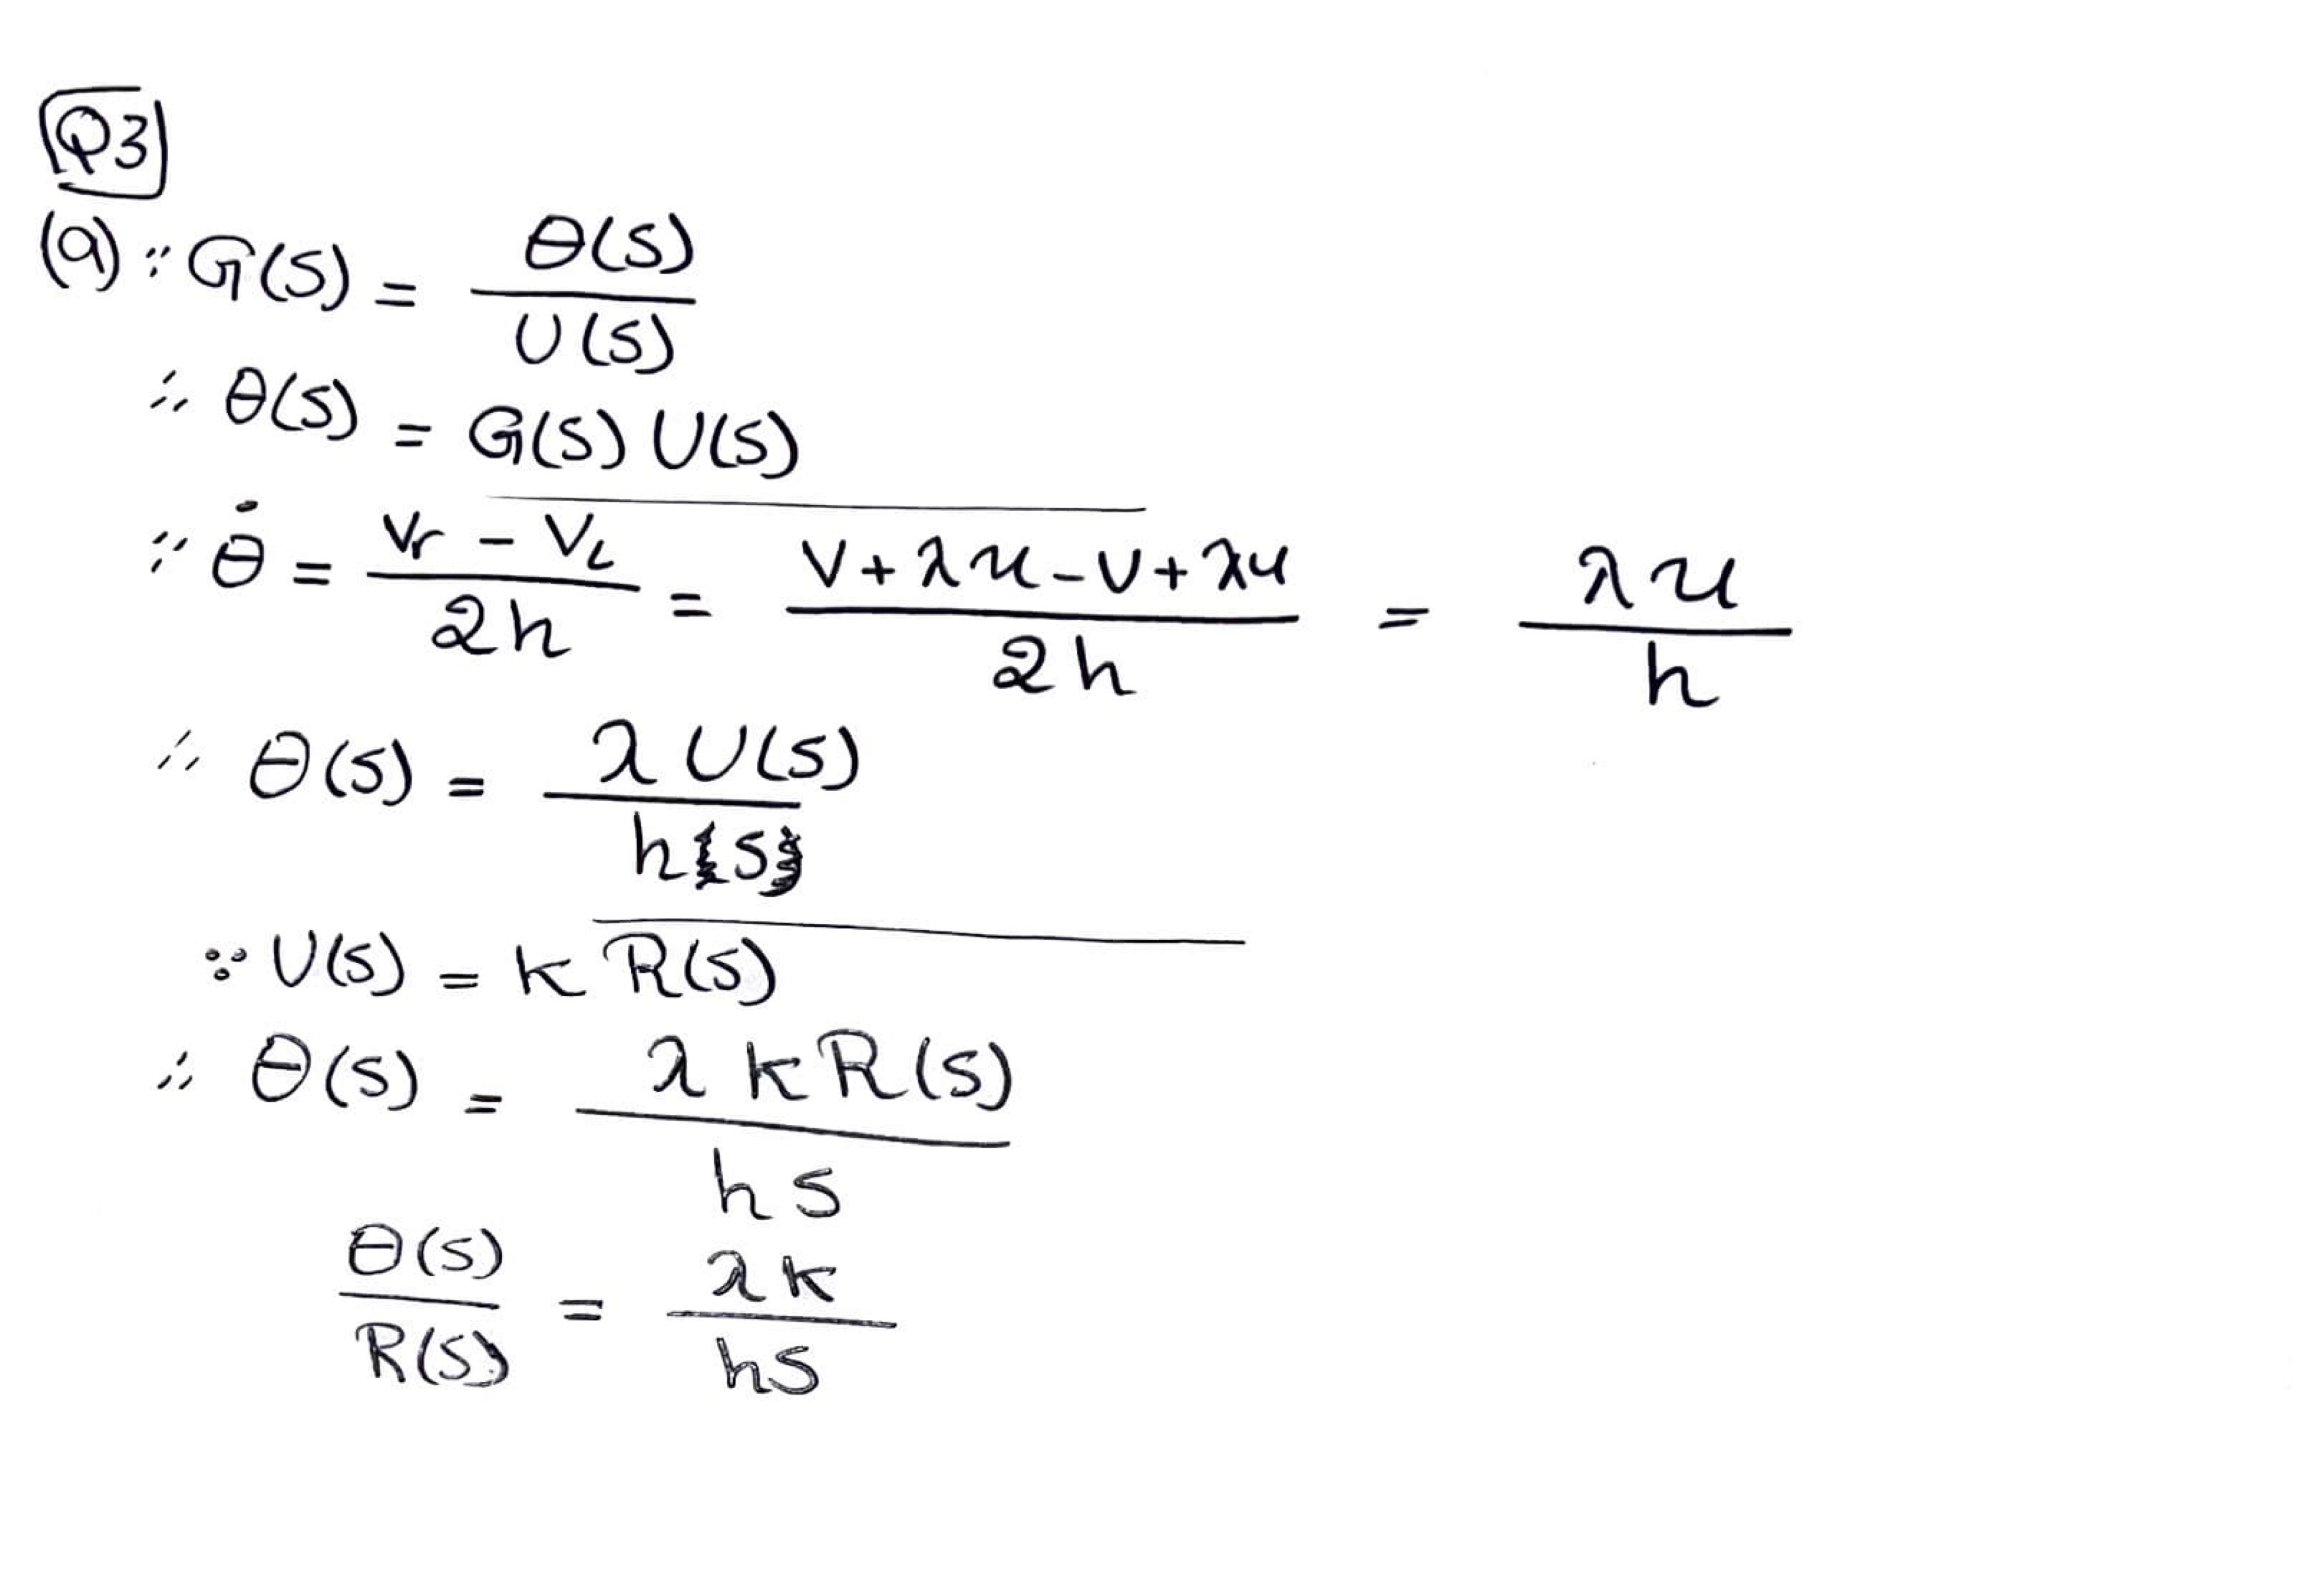 Q3
(a) ∵ G(s) = θ(s) / U(s)
∴ θ(s) = G(s) U(s)
∵ θ̇ = (Vr - VL) / 2h = (V + λu - V + λu) / 2h = λu / h
∴ θ(s) = λ U(s) / hs
∵ U(s) = k R(s)
∴ θ(s) = λ k R(s) / hs
θ(s) / R(s) = λk / hs